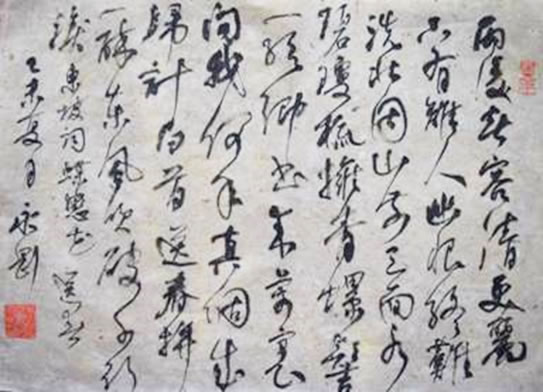 雨後春容清更麗
只有離人幽恨終難
洗北固山前三面水
碧瓊梳擁青螺髻
一紙鄉書來萬里
問我何年真個成
歸計白首送春拚
一醉東風吹破千行
淚東坡詞蝶戀花 送春
乙未夏月 永剛